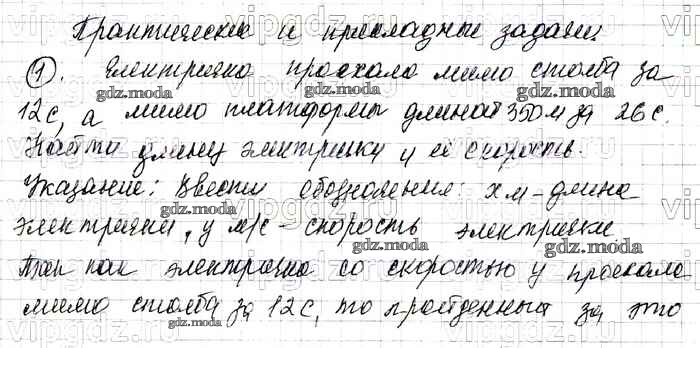 Практические и прикладные задачи.
①. Електричка проехала мимо столба за
12с, а мимо платформы длиной 350 м за 26 с.
Найти длину электрички и её скорость.
Указание: Ввести обозначение: x м - длина
электрички, y м/с - скорость электрички
Так как электричка со скоростью y проехала
мимо столба за 12 с, то пройденный за это